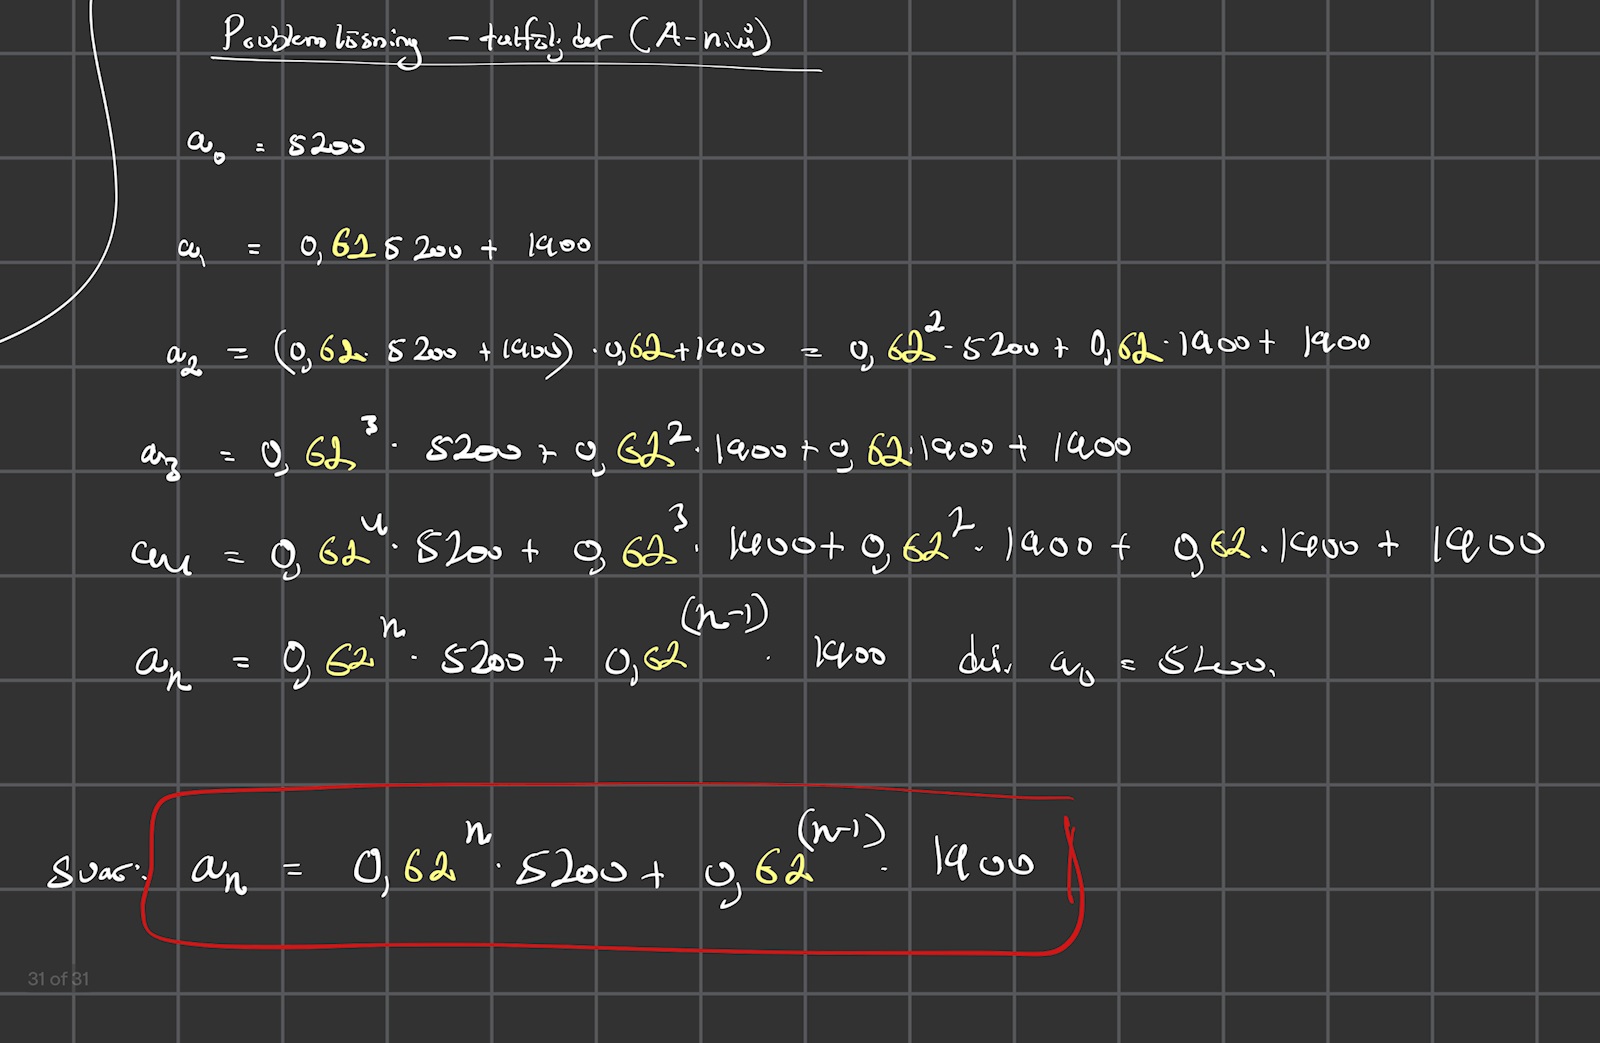 Problemlösning – talföljder (A-nivå)
a₀ = 5200
a₁ = 0,62 5200 + 1900
a₂ = (0,62 · 5200 + 1900) · 0,62 + 1900 = 0,62² · 5200 + 0,62 · 1900 + 1900
a₃ = 0,62³ · 5200 + 0,62² · 1900 + 0,62 · 1900 + 1900
a₄ = 0,62⁴ · 5200 + 0,62³ · 1900 + 0,62² · 1900 + 0,62 · 1900 + 1900
aₙ = 0,62ⁿ · 5200 + 0,62⁽ⁿ⁻¹⁾ · 1900 där a₀ = 5200.
Svar: aₙ = 0,62ⁿ · 5200 + 0,62⁽ⁿ⁻¹⁾ · 1900
31 of 31